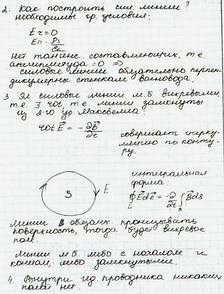 2. Как построить сил. линии?
необходимы гр. условия:
Eτ = 0
En = 
Нет танген. составляющих, т.е.
амплитуда = 0 ⇒
силовые линии обязательно перпен-
дикулярны стенкам волновода.
3. Эл. силовые линии м.б. вихревыми,
т.е. линии замкнуты
из 2-го ур Максвелла:
rot E⃗ = -∂B⃗/∂t
совершает цирку-
ляцию по конту-
ру.
S
E
интегральная
форма
∮E⃗dℓ⃗ = -∂/∂t ∫B⃗ds
линии B обязаны пронизывать
поверхность, тогда будет вихревое
поле.
Линии м.б. либо с началом и
концом, либо замкнутыми.
4. Внутри ид. проводника никаких
полей нет.